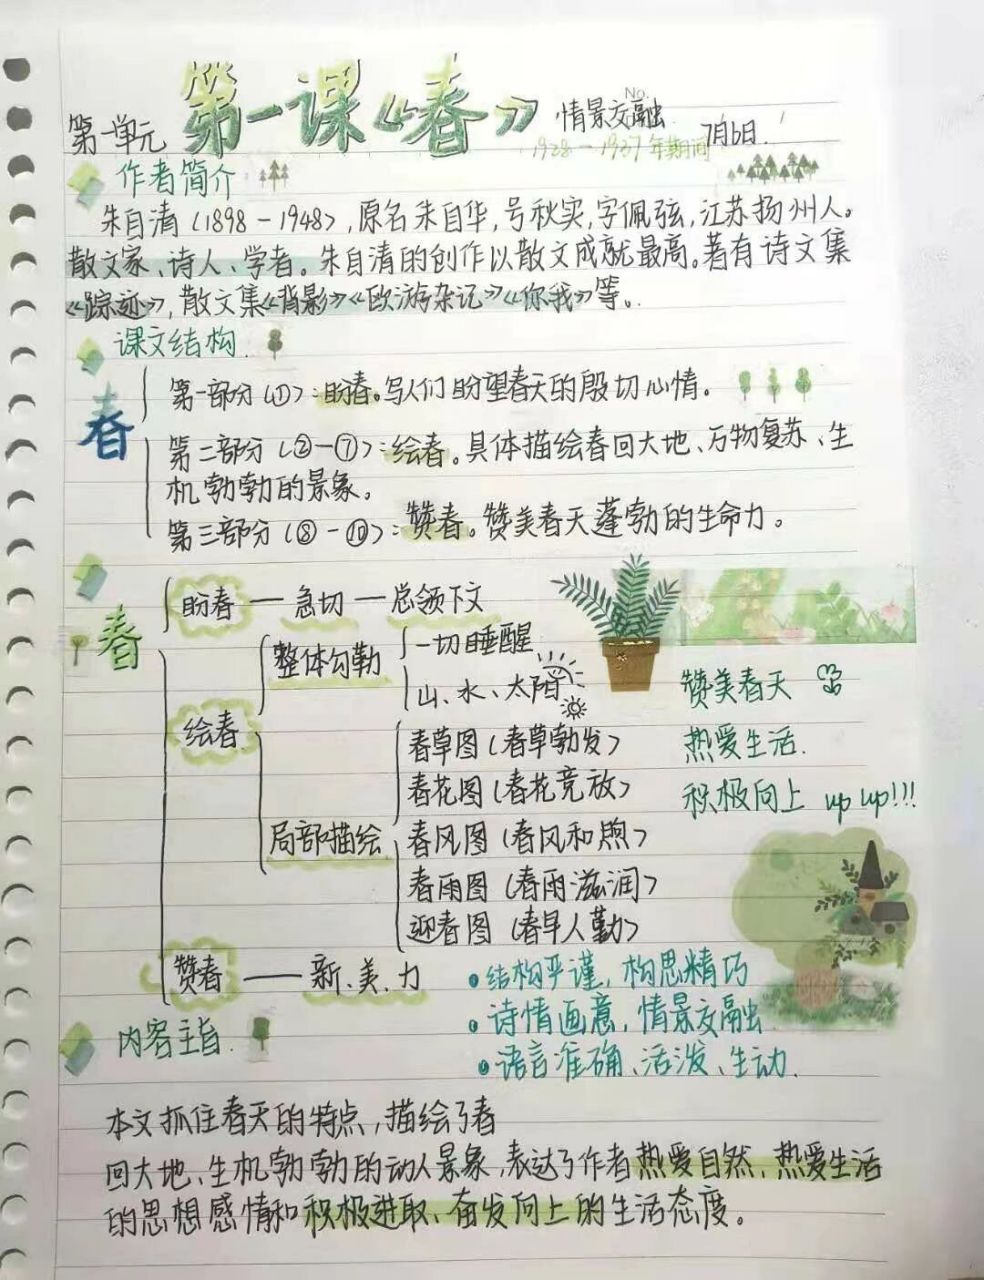 No.
第一单元 第一课《春》 情景交融
1928-1937年期间 7月6日.
作者简介
朱自清(1898-1948),原名朱自华,号秋实,字佩弦,江苏扬州人。
散文家、诗人、学者。朱自清的创作以散文成就最高。著有诗文集
《踪迹》,散文集《背影》《欧游杂记》《你我》等。
课文结构.
春
第一部分(①):盼春。写人们盼望春天的殷切心情。
第二部分(②-⑦):绘春。具体描绘春回大地、万物复苏、生
机勃勃的景象。
第三部分(⑧-⑩):赞春。赞美春天蓬勃的生命力。
春
盼春—急切—总领下文
绘春
整体勾勒
一切睡醒
山、水、太阳
局部描绘
春草图(春草勃发)
春花图(春花竞放)
春风图(春风和煦)
春雨图(春雨滋润)
迎春图(春早人勤)
赞春——新.美.力
赞美春天
热爱生活.
积极向上 up up!!!
•结构严谨,构思精巧
•诗情画意,情景交融
•语言准确、活泼、生动.
内容主旨.
本文抓住春天的特点,描绘了春
回大地、生机勃勃的动人景象,表达了作者热爱自然、热爱生活
的思想感情和积极进取、奋发向上的生活态度。